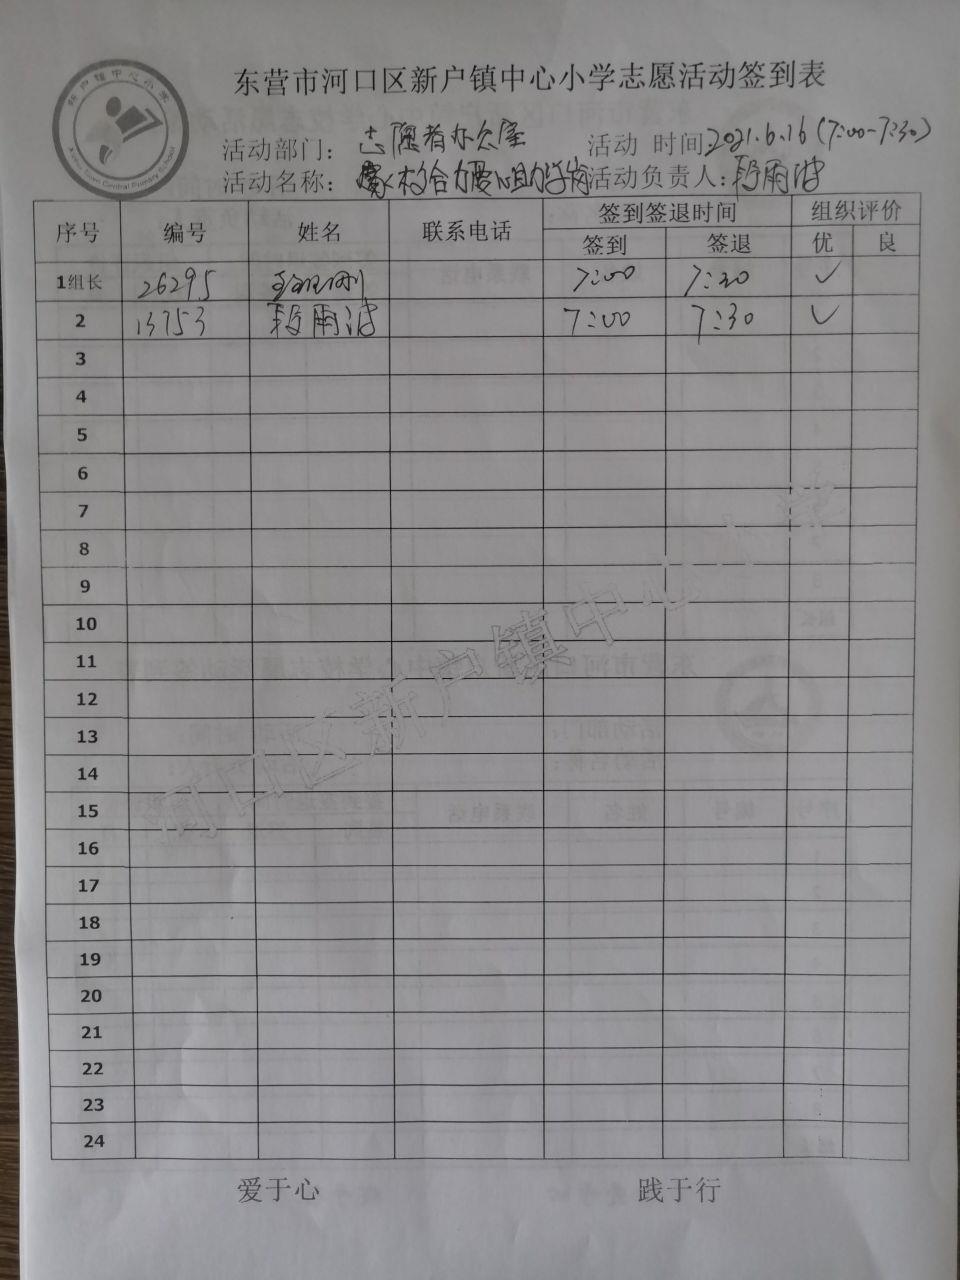 新户镇中心小学
Xinhu Town Central Primary School
东营市河口区新户镇中心小学志愿活动签到表
活动部门： 志愿者办公室 活动 时间:2021.6.16(7:00-7:30)
活动名称： 家校合力 爱心助学岗 活动负责人: 段雨波
序号 编号 姓名 联系电话 签到签退时间 组织评价
签到 签退 优 良
1组长 26295 7:00 7:30 ✓
2 13753 段雨波 7:00 7:30 ✓
3
4
5
6
7
8
9
10
11
12
13
14
15
16
17
18
19
20
21
22
23
24
河口区新户镇中心小学
爱于心 践于行